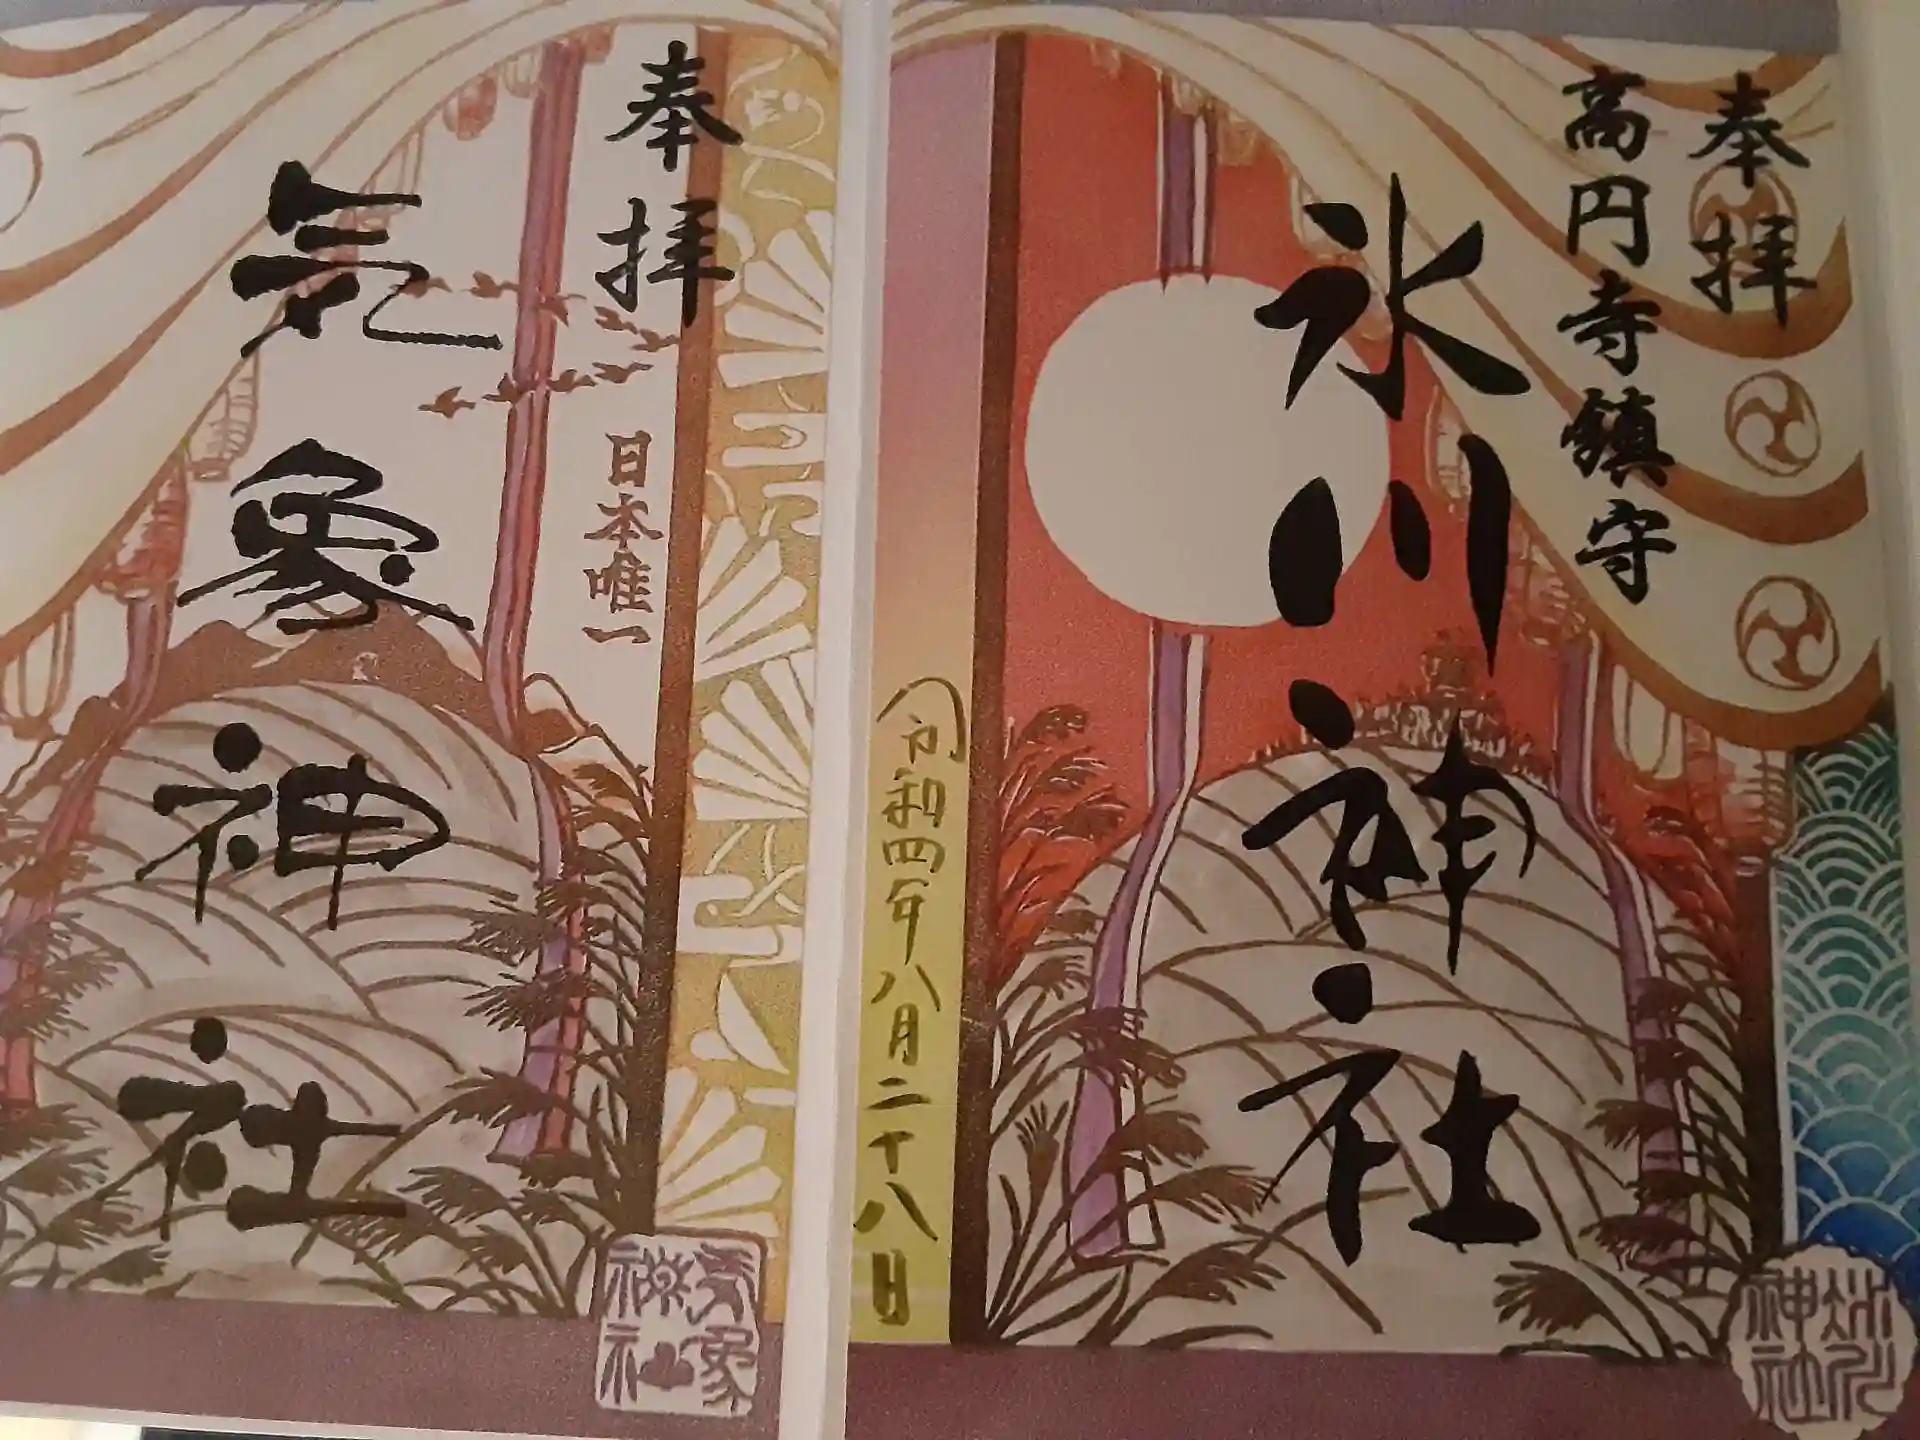 奉拝
高円寺鎮守
氷川神社
氷川神社
令和四年八月二十八日
奉拝
日本唯一
気象神社
気象神社